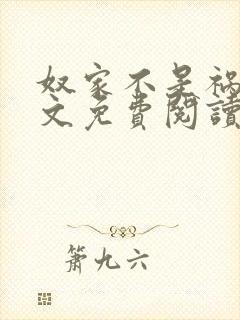 奴家不是祸
文免費閱讀
萧九六